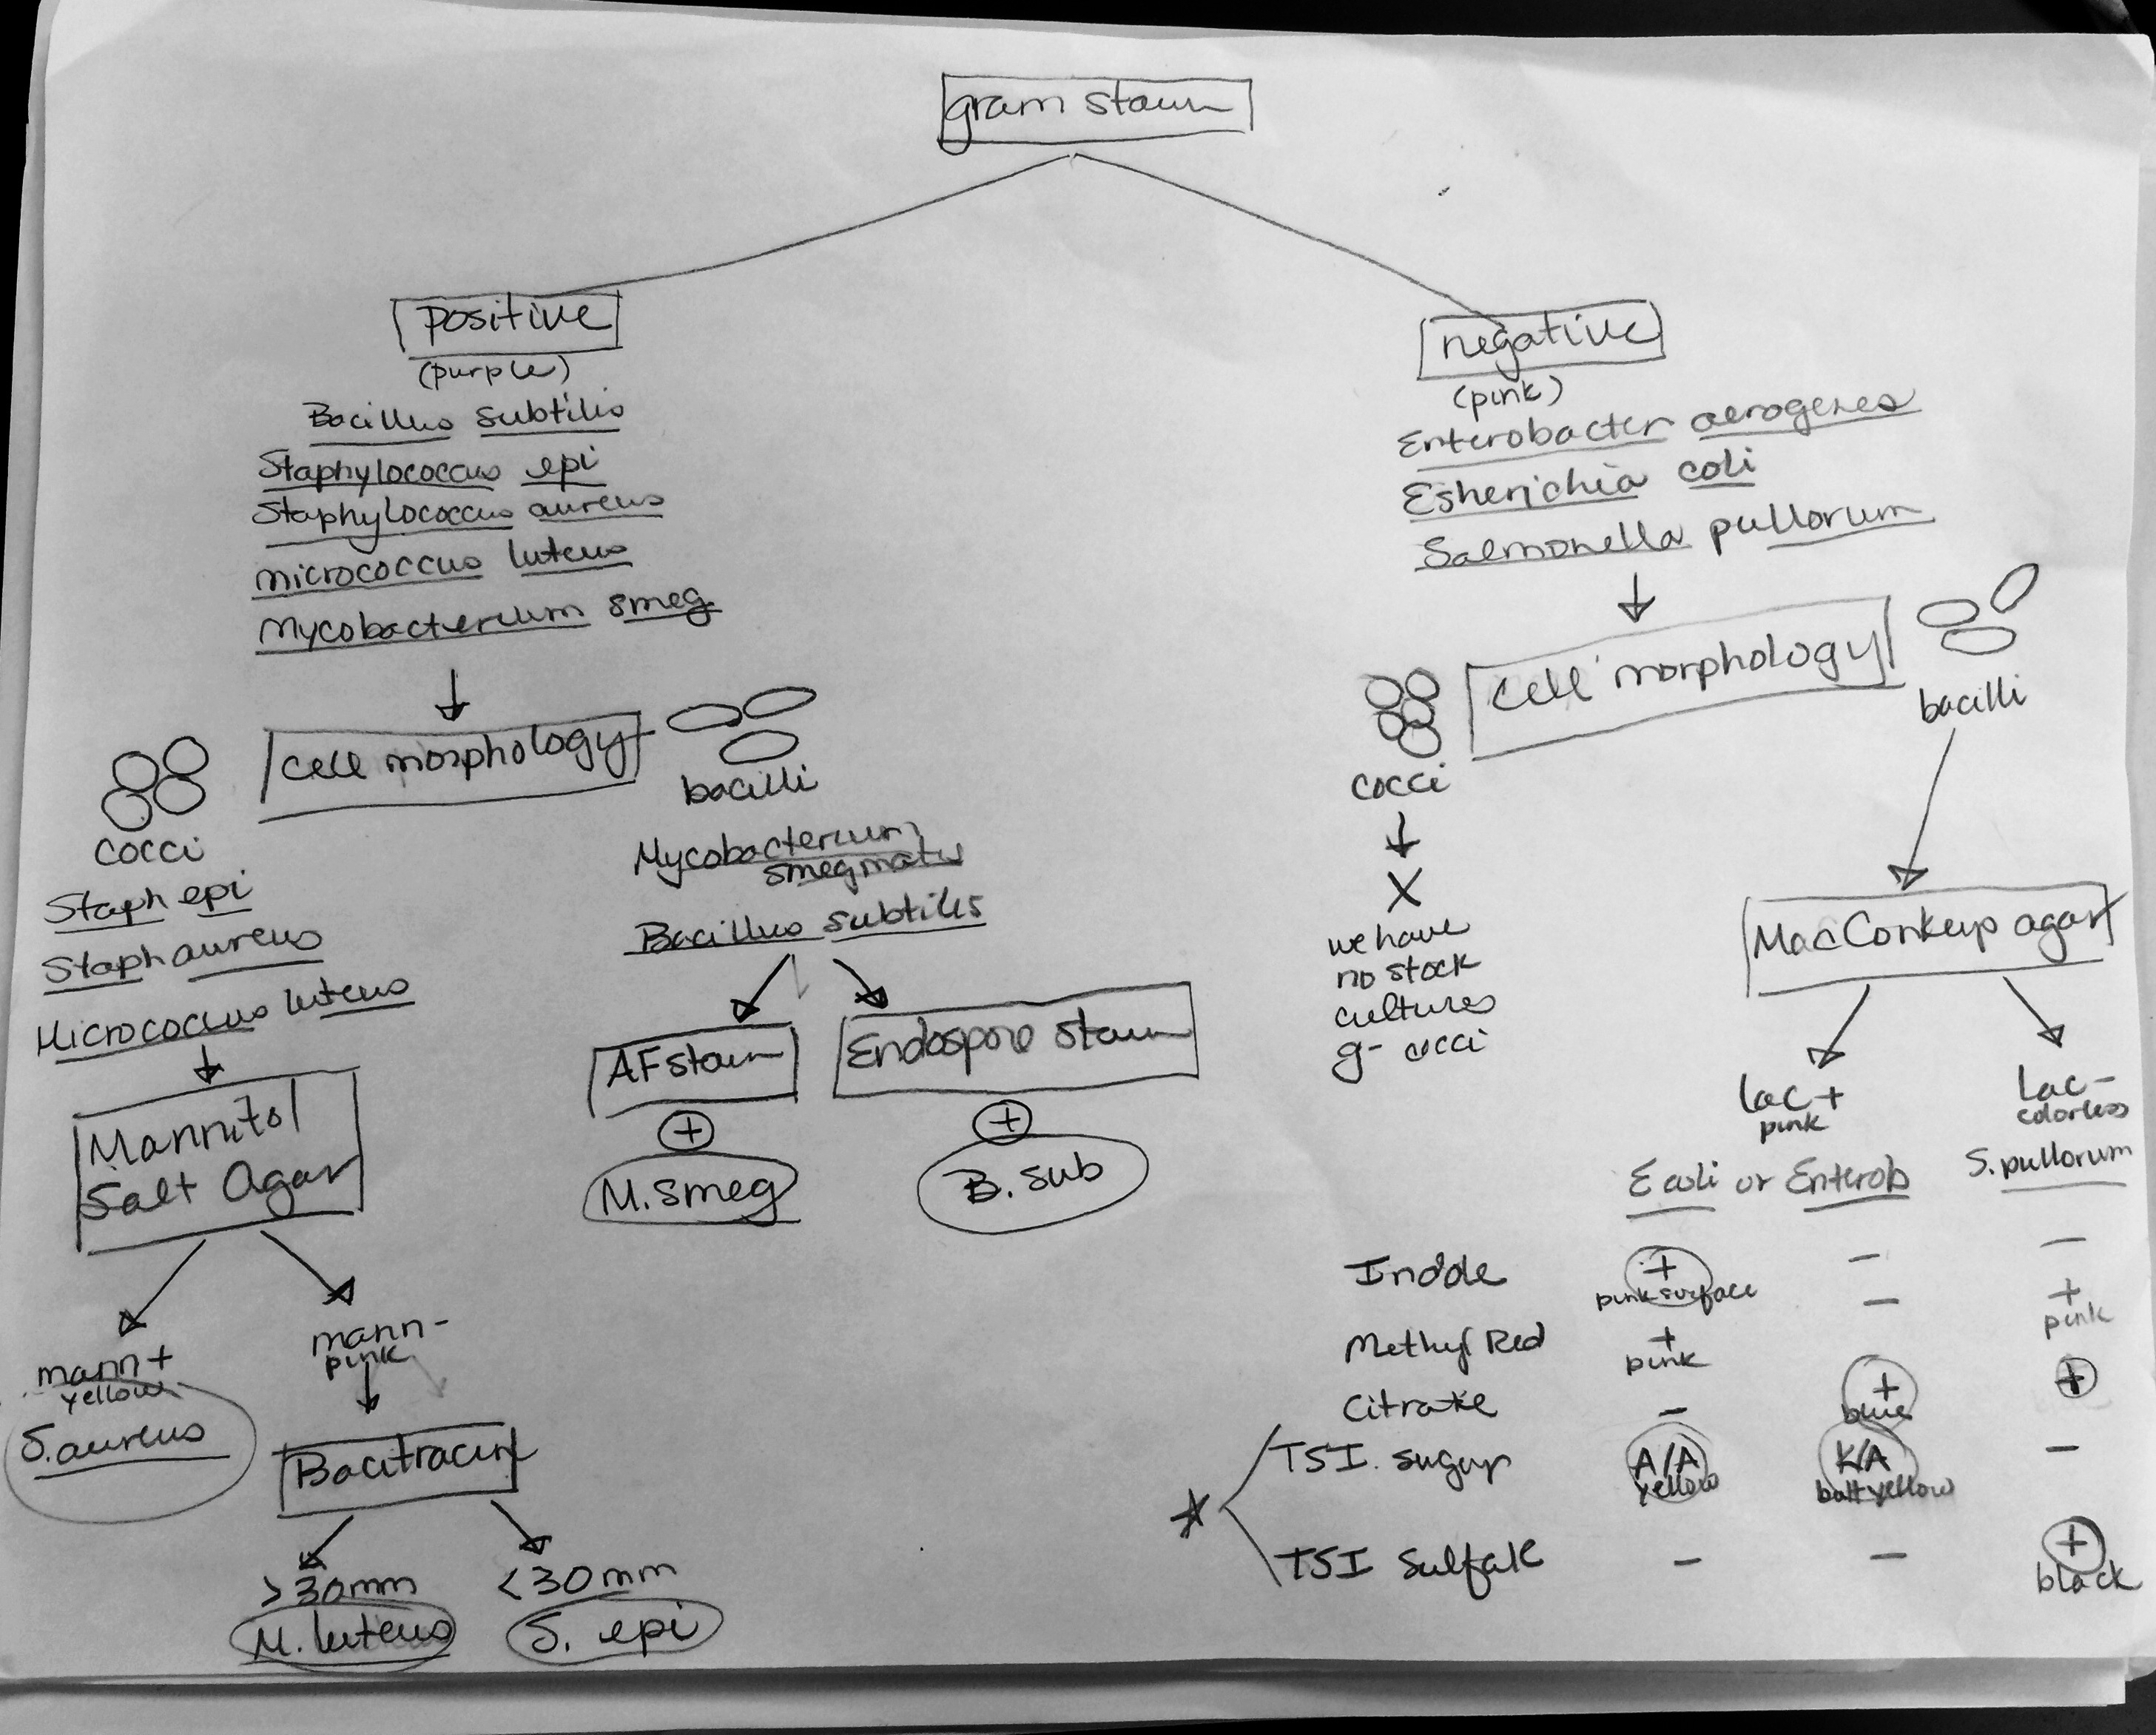 gram stain
positive
(purple)
Bacillus subtilis
Staphylococcus epi
Staphylococcus aureus
micrococcus luteus
Mycobacterium smeg.
cell morphology
cocci
bacilli
Staph epi
Staph aureus
Micrococcus luteus
Mycobacterium
smegmatis
Bacillus subtilis
AF stain
+
M. smeg
Endospore stain
+
B. sub
Mannitol
Salt Agar
mann+
yellow
S. aureus
mann-
pink
Bacitracin
>30mm
M. luteus
<30mm
S. epi
negative
(pink)
Enterobacter aerogenes
Esherichia coli
Salmonella pullorum
cell morphology
cocci
bacilli
X
we have
no stock
cultures
g- cocci
MacConkey agar
Lac+
pink
Lac-
colorless
E coli or Enterob
S. pullorum
Indole + - -
pink surface
Methyl Red + - +
pink pink
Citrate - + +
blue
TSI. sugar A/A K/A -
yellow butt yellow
TSI Sulfate - - +
black